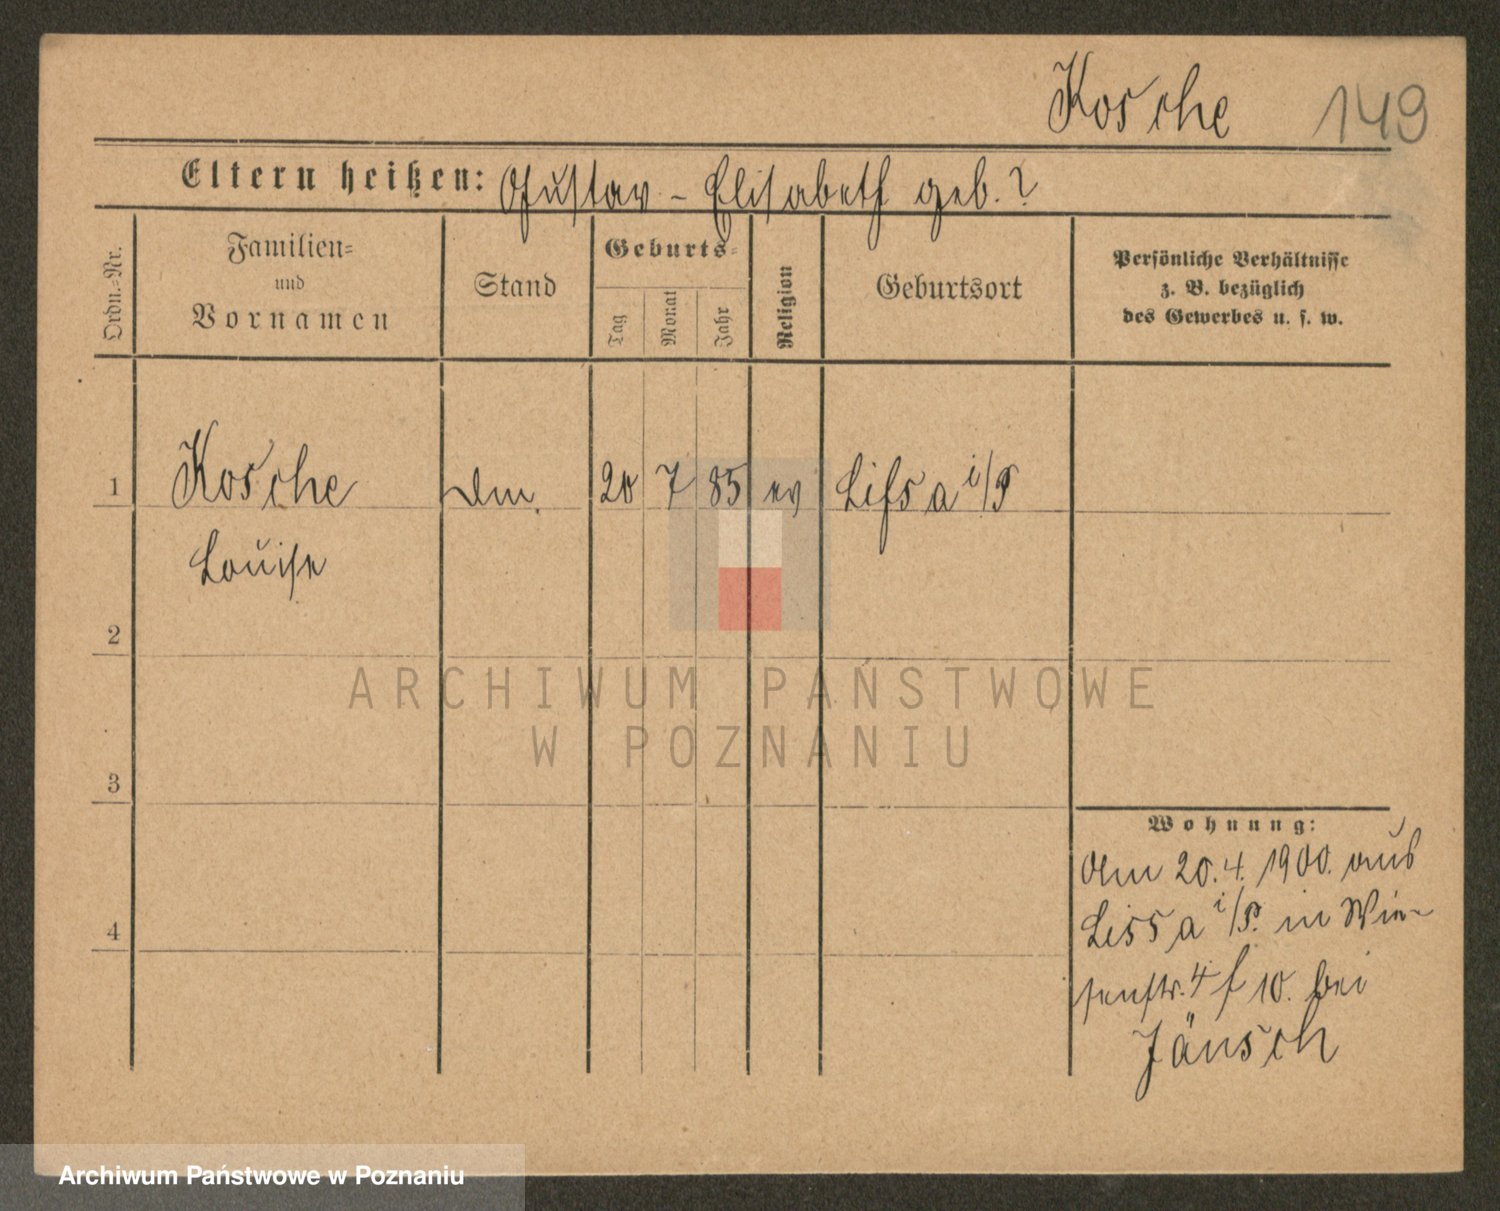 Kosche 149
Eltern heißen: Gustav - Elisabeth geb. ?
Ordn.=Nr.
Familien=
und
Vornamen
Stand
Geburts=
Tag
Monat
Jahr
Religion
Geburtsort
Persönliche Verhältnisse
z. B. bezüglich
des Gewerbes u. s. w.
1 Kosche 20 7 85 ev Lissa i/P
Louise
2
ARCHIWUM PAŃSTWOWE
W POZNANIU
3
Wohnung:
Am 20.4.1900. aus
Lissa i/P. in Wie-
senstr. 4 f 10. bei
Jänsch
4
Archiwum Państwowe w Poznaniu